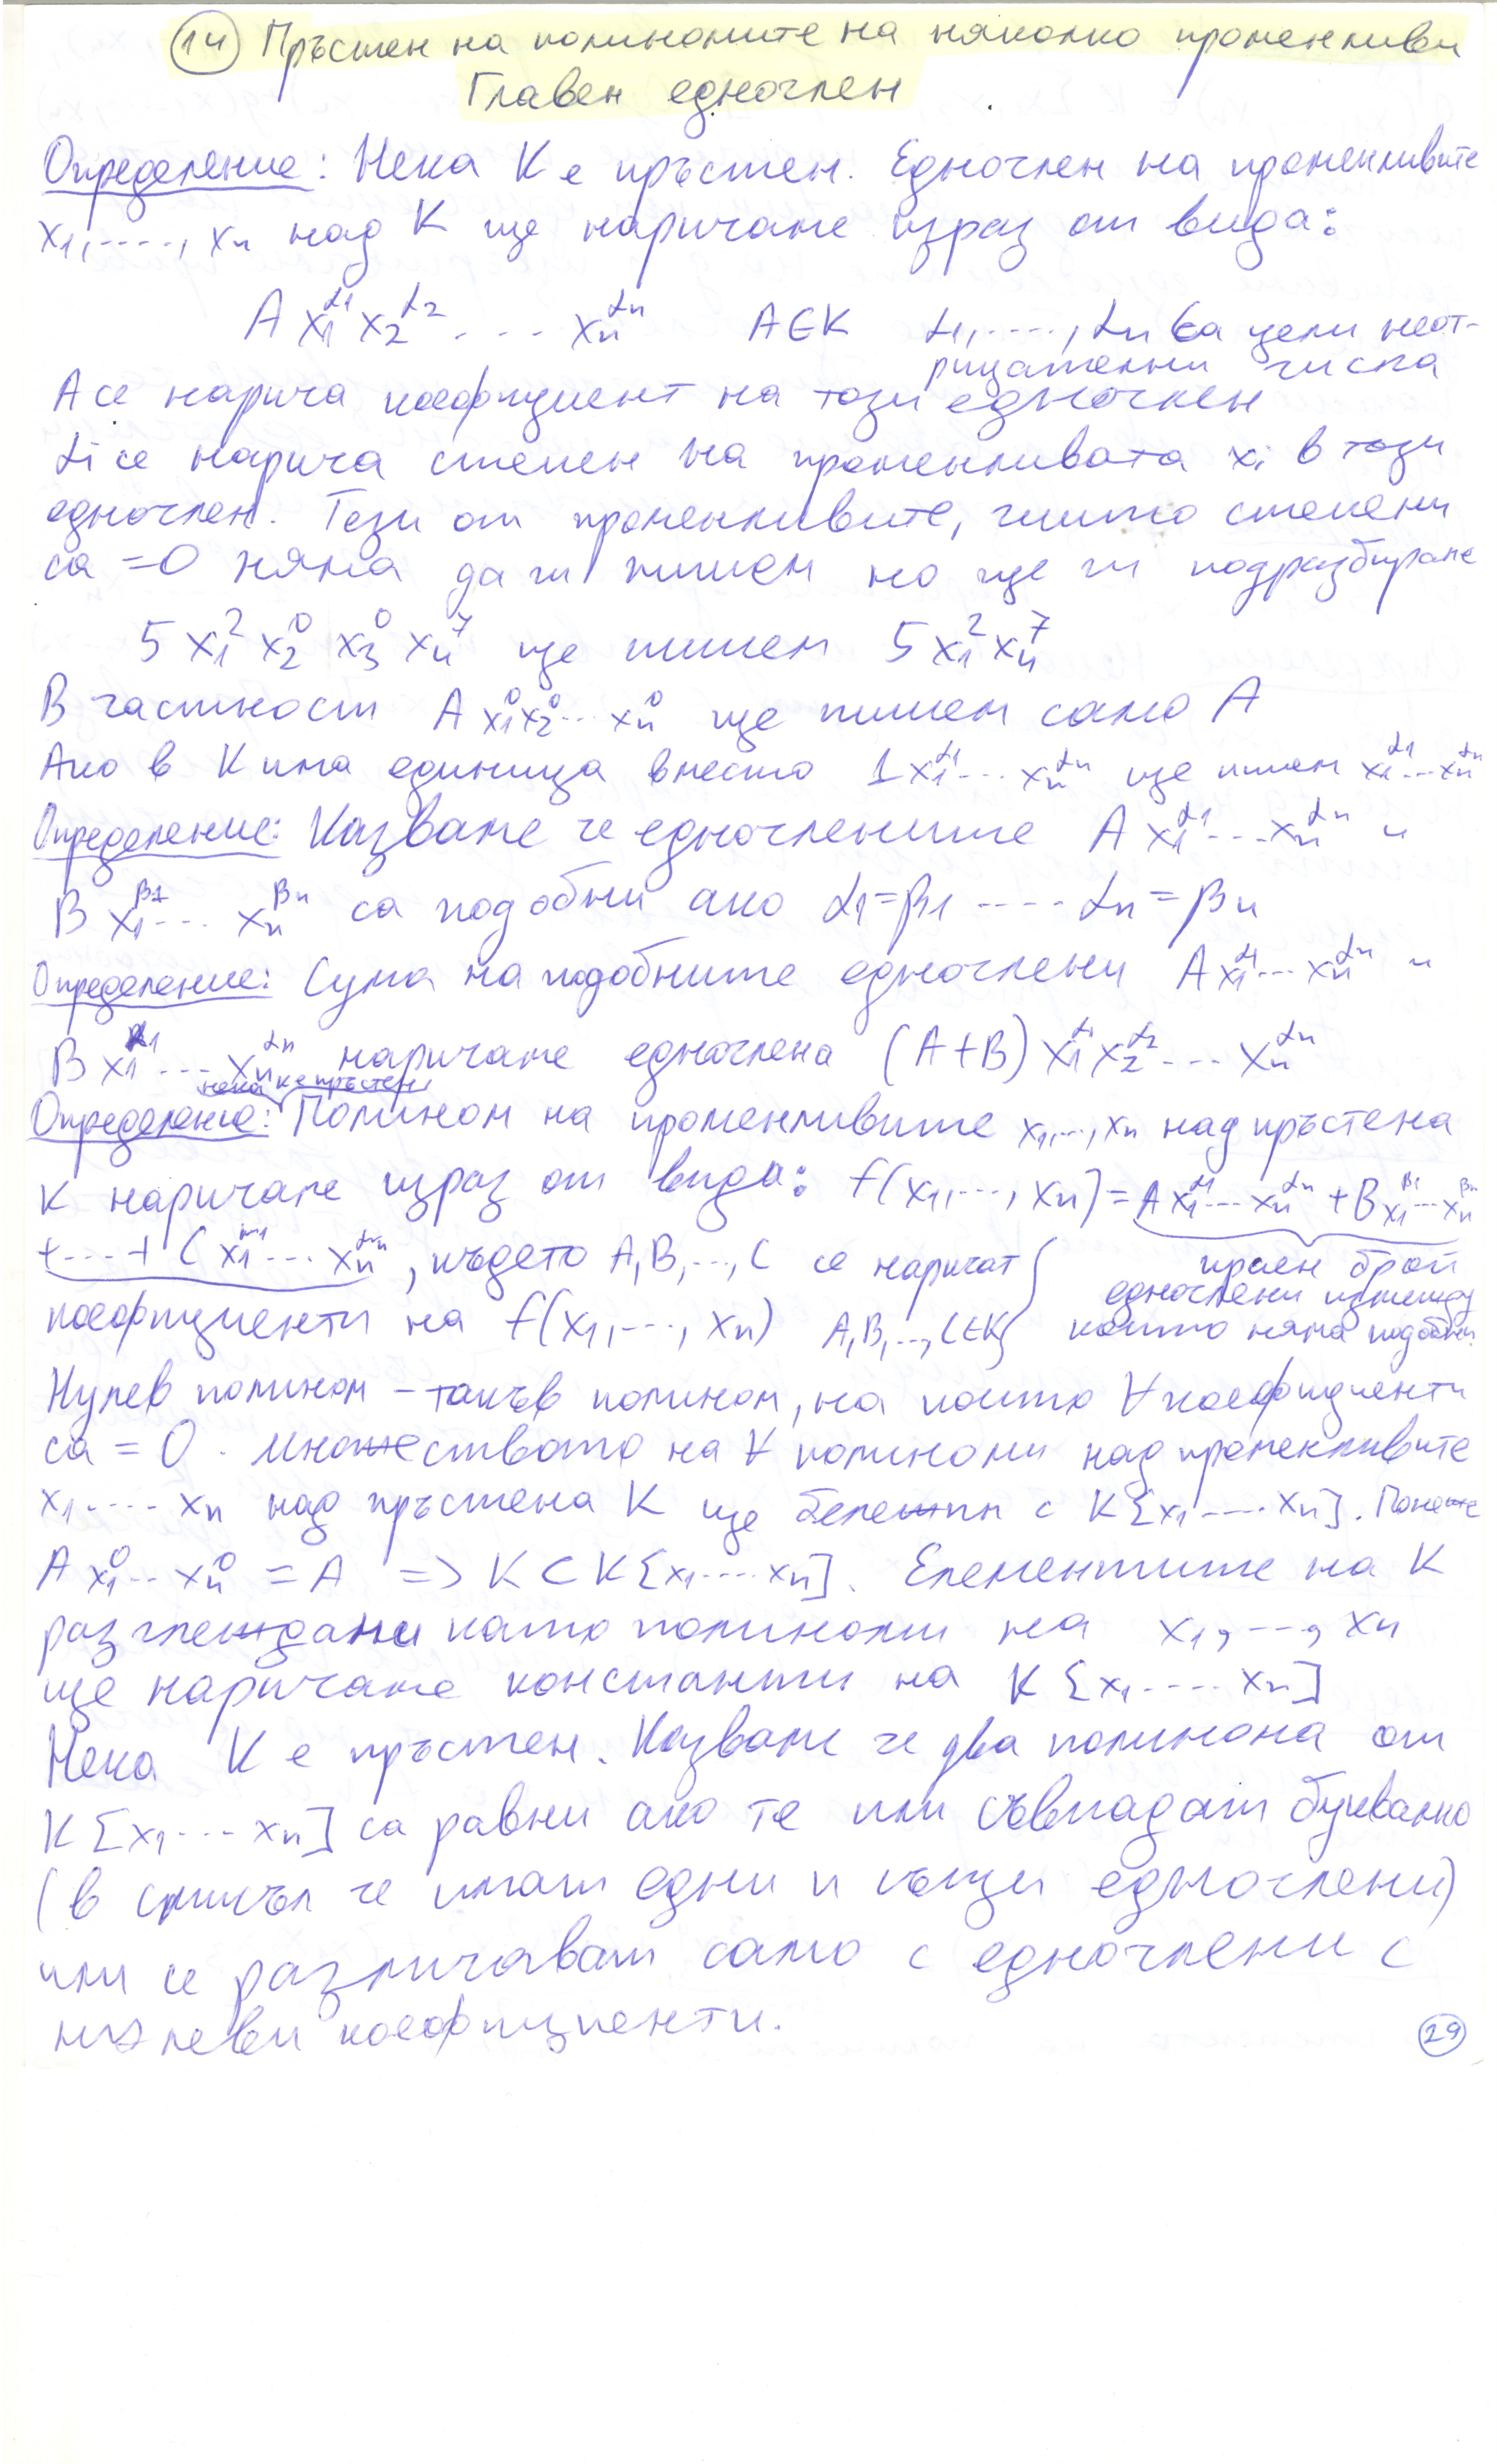 14 Пръстен на полиномите на няколко променливи
Главен едночлен
Определение: Нека K е пръстен. Едночлен на променливите
x₁,....,xₙ над K ще наричаме израз от вида:
A x₁^α₁ x₂^α₂ .... xₙ^αₙ A∈K α₁,....,αₙ са цели неот-
рицателни числа
A се нарича коефициент на този едночлен
αᵢ се нарича степен на променливата xᵢ в този
едночлен. Тези от променливите, чиито степени
са =0 няма да ги пишем но ще ги подразбираме
5 x₁² x₂⁰ x₃⁰ x₄⁷ ще пишем 5 x₁² x₄⁷
В частност A x₁⁰x₂⁰...xₙ⁰ ще пишем само A
Ако в K има единица вместо 1x₁^α₁...xₙ^αₙ ще пишем x₁^α₁...xₙ^αₙ
Определение: Казваме че едночлените A x₁^α₁...xₙ^αₙ и
B x₁^β₁... xₙ^βₙ са подобни ако α₁=β₁ .... αₙ=βₙ
Определение: Сума на подобните едночлени A x₁^α₁...xₙ^αₙ и
B x₁^α₁....xₙ^αₙ наричаме едночлена (A+B) x₁^α₁ x₂^α₂.... xₙ^αₙ
нека K е пръстен
Определение: Полином на променливите x₁,...,xₙ над пръстена
K наричаме израз от вида: f(x₁,...,xₙ)=A x₁^α₁...xₙ^αₙ +B x₁^β₁...xₙ^βₙ
+....+ C x₁ ... xₙ , където A,B,...,C се наричат
краен брой
едночлени измежду
коефициенти на f(x₁,...,xₙ) A,B,...,C∈K} които няма подобни.
Нулев полином – такъв полином, на който ∀ коефициенти
са = 0. Множеството на ∀ полиноми над променливите
x₁....xₙ над пръстена K ще бележим с K[x₁....xₙ]. Понеже
A x₁⁰...xₙ⁰ = A => K⊂K[x₁....xₙ]. Елементите на K
разглеждани като полиноми на x₁,..., xₙ
ще наричаме константи на K[x₁....xₙ]
Нека K е пръстен. Казваме че два полинома от
K[x₁...xₙ] са равни ако те или съвпадат буквално
(в смисъл че имат едни и същи едночлени)
или се различават само с едночлени с
нулеви коефициенти.
29